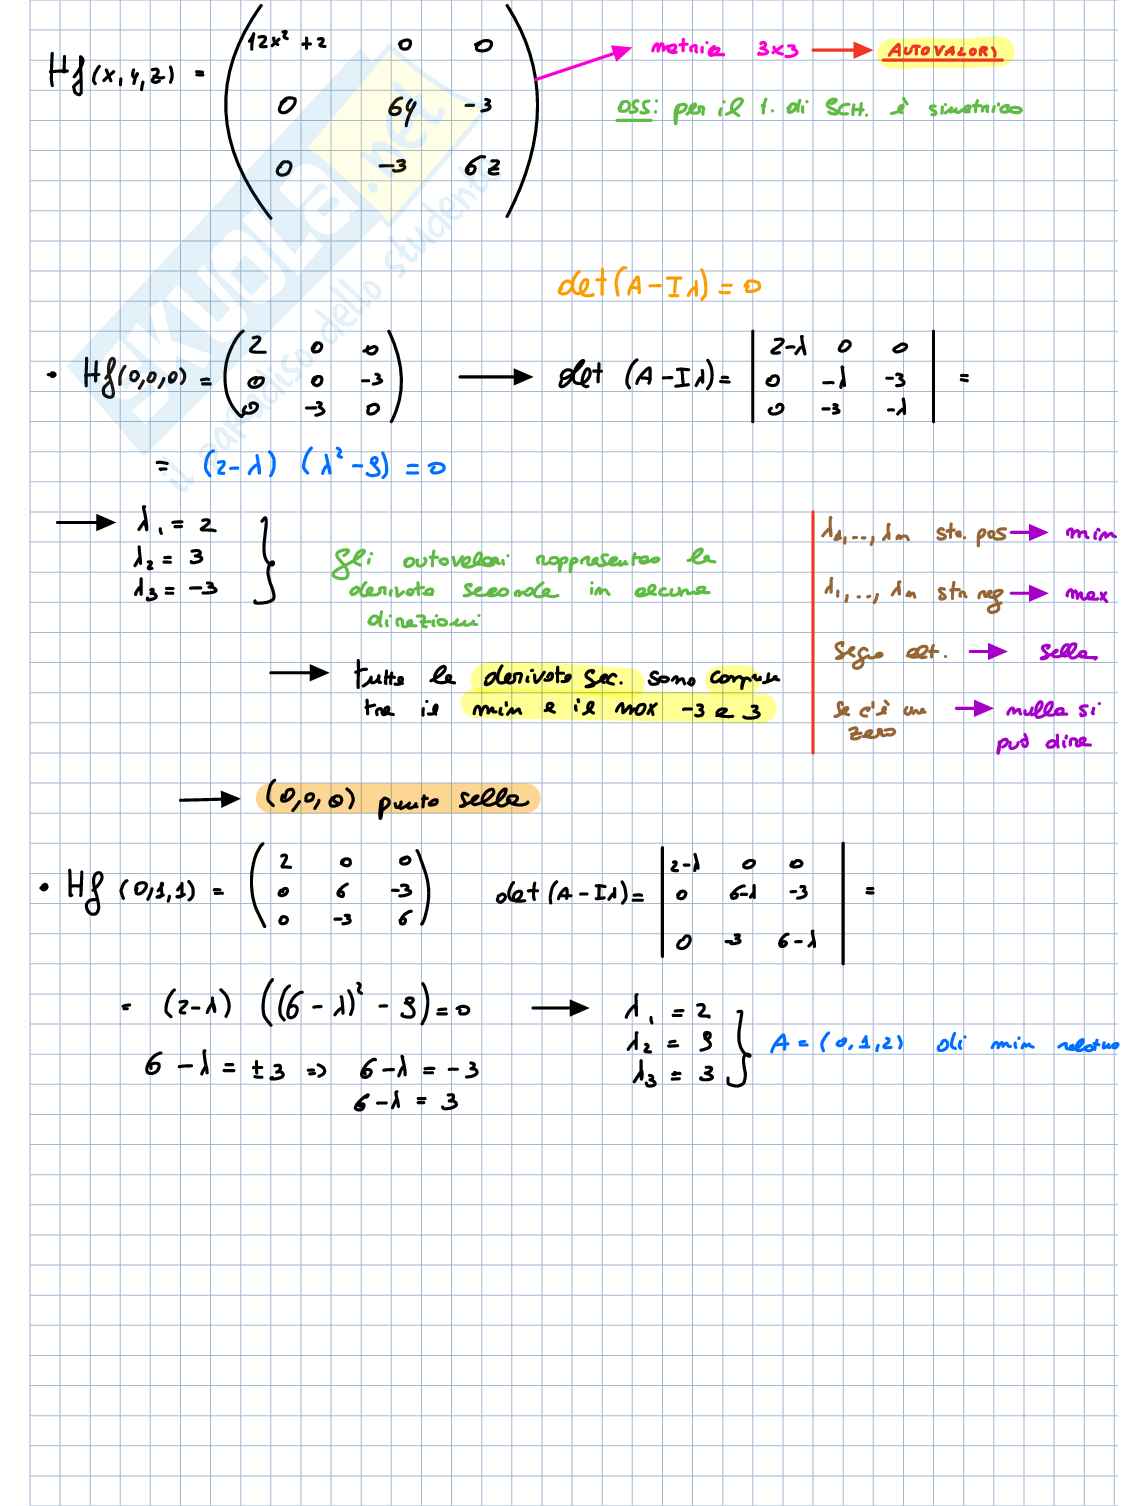 Hf(x,y,z) = ( 12x² + 2 0 0 → matrice 3x3 → AUTOVALORI
0 6y -3
0 -3 6z )
OSS: per il t. di SCH. è simetrica
det(A - Iλ) = 0
• Hf(0,0,0) = ( 2 0 0 → det (A - Iλ) = | 2-λ 0 0
0 0 -3 0 -λ -3 | =
0 -3 0 ) 0 -3 -λ
= (2-λ) (λ² - 9) = 0
→ λ₁ = 2
λ₂ = 3
λ₃ = -3
gli autovalori rappresentao la
derivata seconda in alcune
direzioni
→ tutte le derivate sec. sono comprese
tra il min e il max -3 e 3
λ₁,..,λn str. pos → min
λ₁,..,λn str neg → max
segno alt. → sella
se c'è uno zero → nulla si può dire
→ (0,0,0) punto sella
• Hf (0,1,1) = ( 2 0 0 det(A - Iλ) = | 2-λ 0 0
0 6 -3 0 6-λ -3 | =
0 -3 6 ) 0 -3 6-λ
= (2-λ) ((6-λ)² - 9) = 0 → λ₁ = 2
λ₂ = 9
λ₃ = 3
A = (0,1,2) di min relativo
6 - λ = ±3 => 6-λ = -3
6-λ = 3
SKUOLA.net
il paradiso dello studente